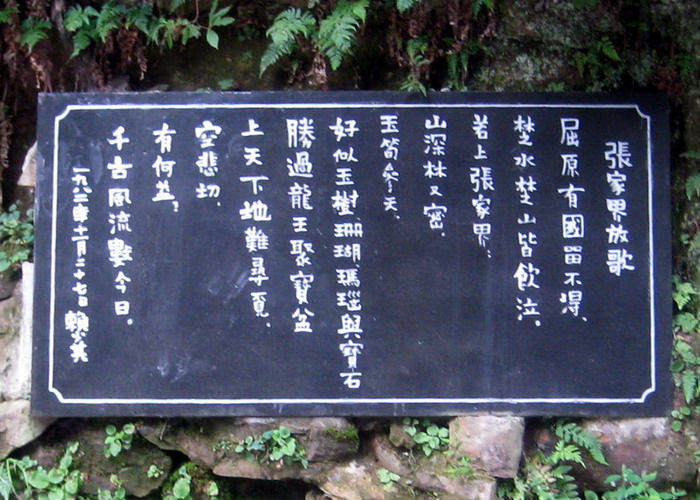 張家界放歌
屈原有國留不得、
楚水楚山皆飲泣。
若上張家界、
山深林又密。
玉筍參天、
好似玉樹、珊瑚、瑪瑙與寶石
勝過龍王聚寶盆
上天下地難尋覓。
空悲切、
有何益？
千古風流數今日。
一九八二年十一月二十七日 賴少其